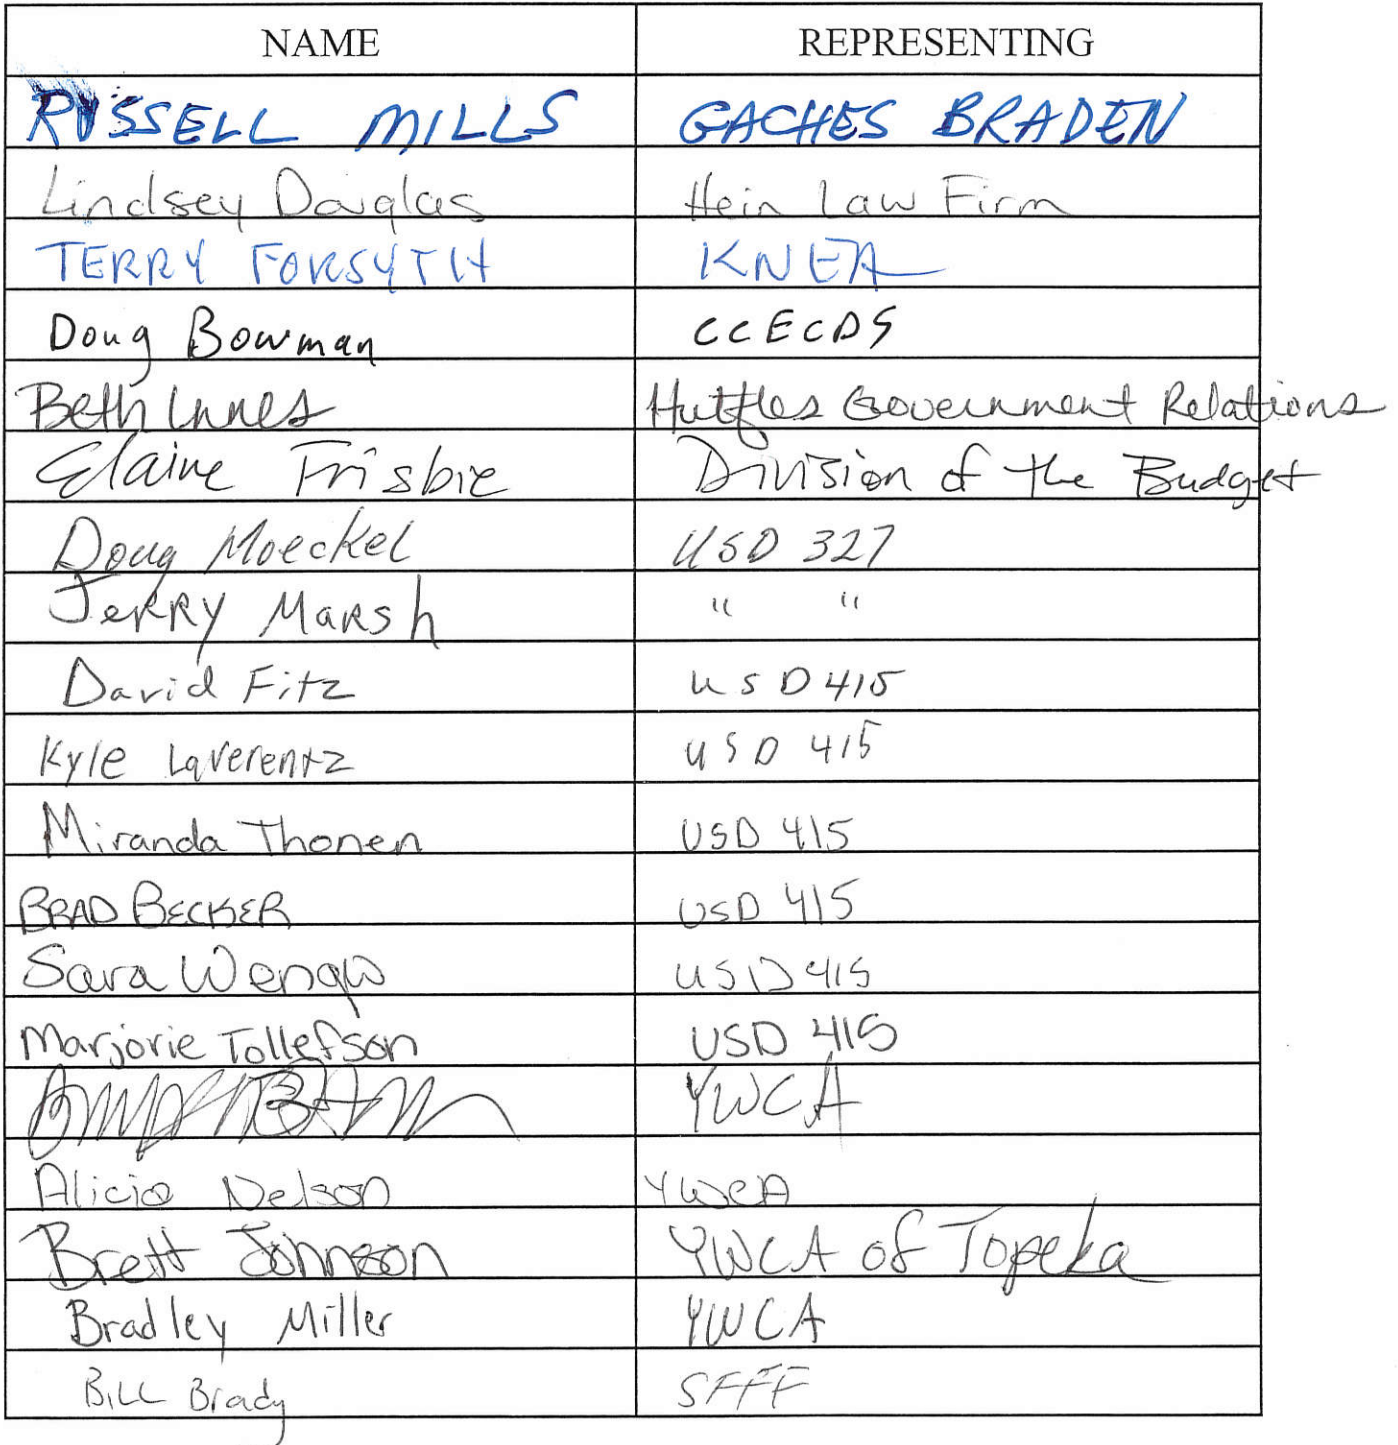 NAME REPRESENTING
RUSSELL MILLS GACHES BRADEN
Lindsey Douglas Hein Law Firm
TERRY FORSYTH KNEA
Doug Bowman CCECDS
Beth Innes Hutfles Government Relations
Elaine Frisbie Division of the Budget
Doug Moeckel USD 327
Jerry Marsh " "
David Fitz USD 415
Kyle Laverentz USD 415
Miranda Thonen USD 415
BRAD BECKER USD 415
Sara USD 415
Marjorie Tollefson USD 415
YWCA
Alicia Nelson YWCA
Brett Johnson YWCA of Topeka
Bradley Miller YWCA
BILL Brady SFFF